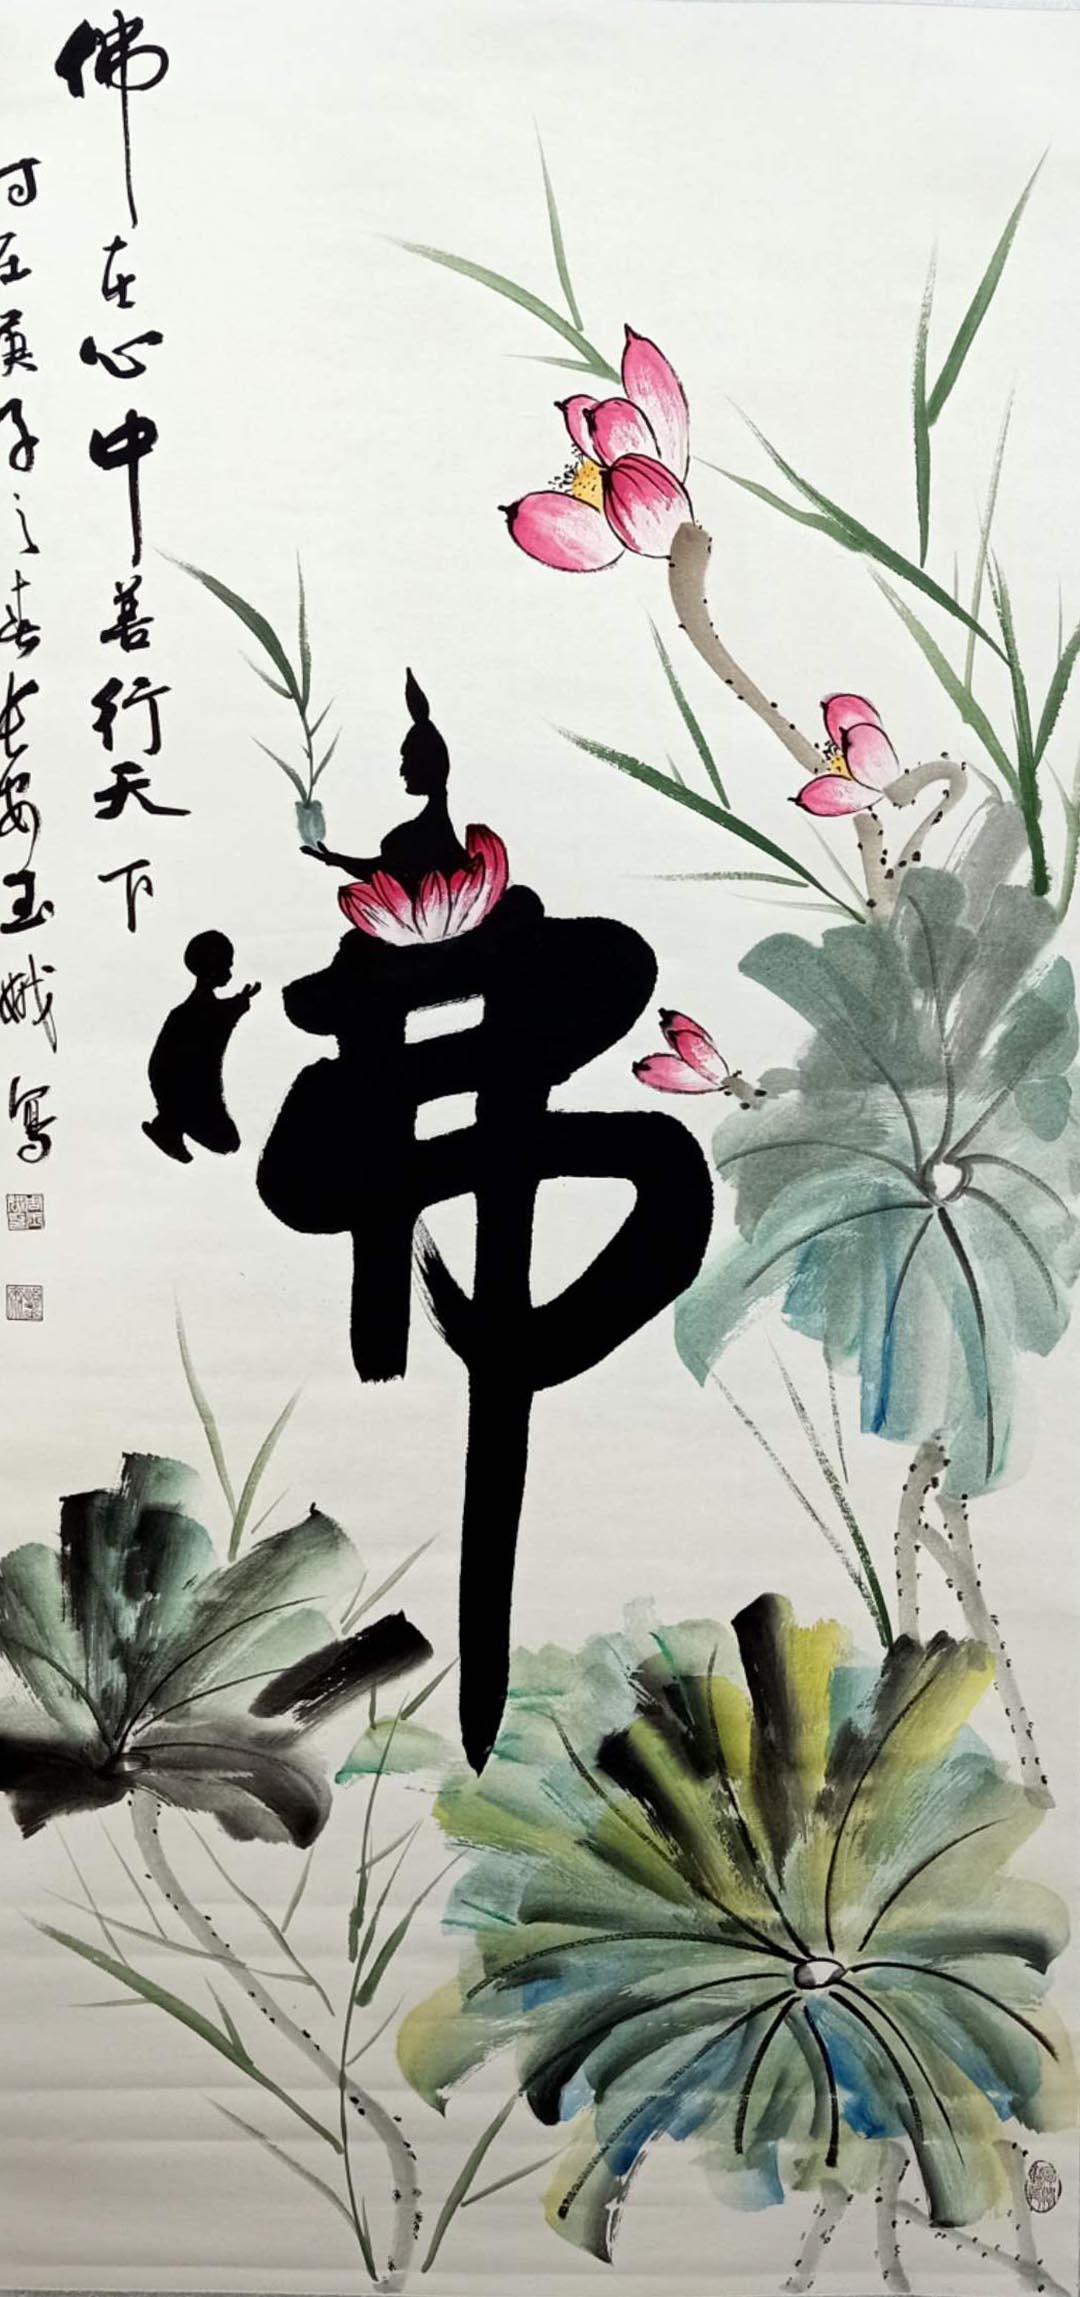 佛在心中善行天下
时在庚子之春长安玉娥写
佛